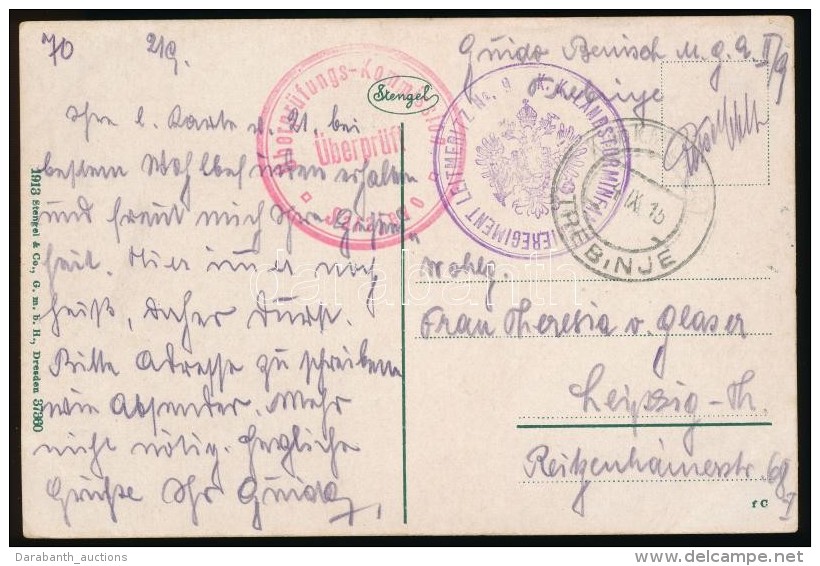 70 2/9.
Ihre l. Karte v. 21 bei
bestem Wohlbefinden erhalten
und freut mich Ihre Gesund
heit. Hier immer noch
heiß, daher Durst.
Bitte Adresse zu schreiben
wie Absender. Mehr
nicht nötig. Herzliche
Grüße Ihr Guido
1913 Stengel & Co., G. m. b. H., Dresden 37360
Stengel
Überprüfungs-Kommission
Überprüft
K. K. LANDSTURMINFANTERIEREGIMENT LEITMERITZ Nr. 9
TREBINJE
IX 15
Guido Benisch M. g. A. II/9
Trebinje
Wohlg.
Frau Theresia v. Glaser
Leipzig-Th.
Reitzenhainerstr. 68
I
f C
darabanth
Darabanth_auctions
delcampe.net